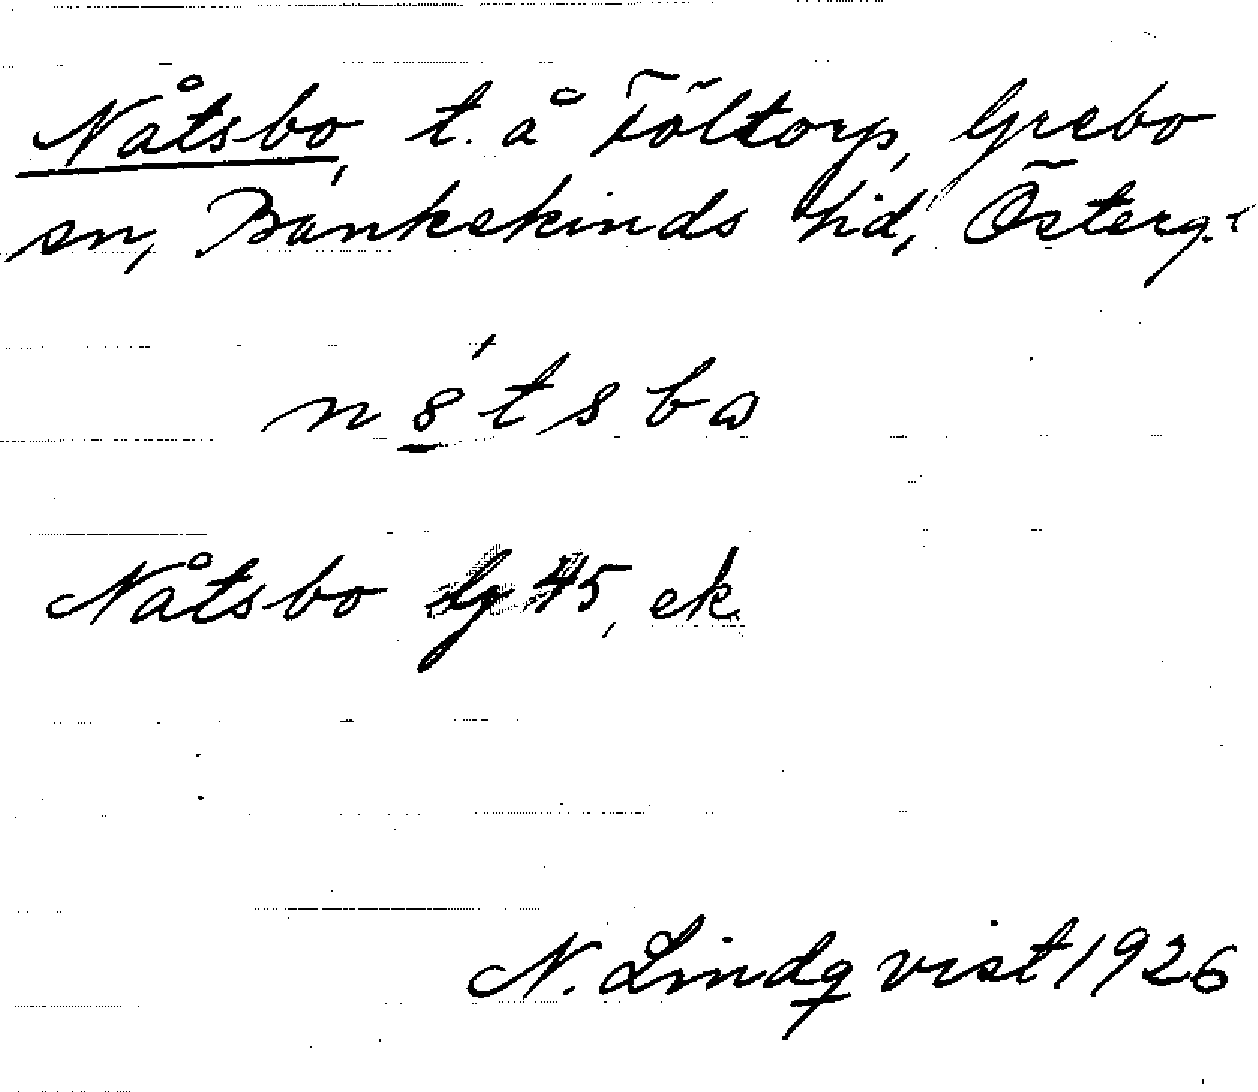 Nåtsbo, t. å Föltorp, Grebo
sn, Bankekinds hd, Österg.
Nåtsbo 45, ek.
N. Lindqvist 1926